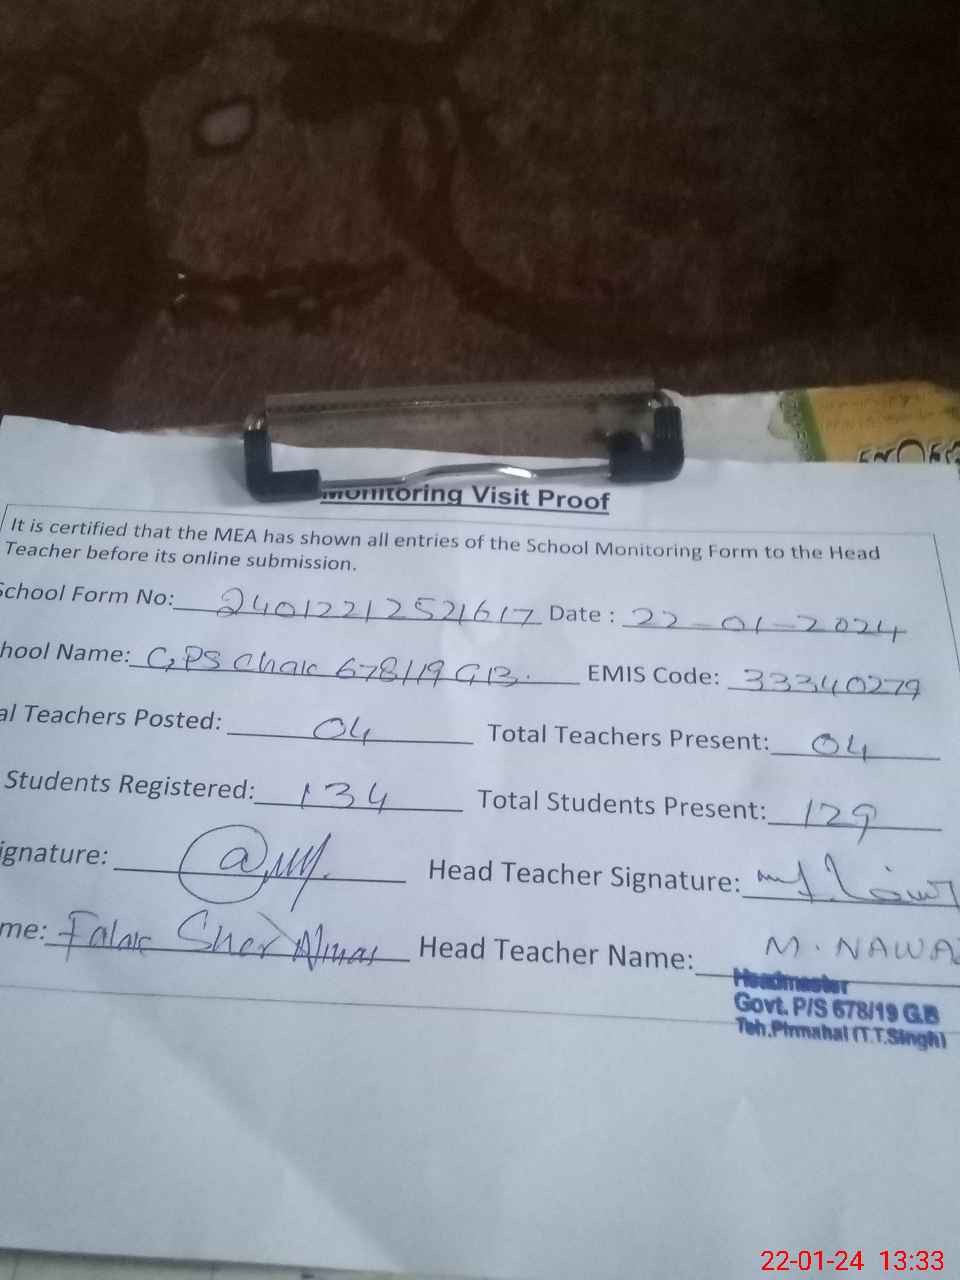 Monitoring Visit Proof
It is certified that the MEA has shown all entries of the School Monitoring Form to the Head
Teacher before its online submission.
School Form No: 24012212521617 Date : 22-01-2024
hool Name: GPS Chak 678/19 GB. EMIS Code: 33340279
al Teachers Posted: 04 Total Teachers Present: 04
Students Registered: 134 Total Students Present: 129
ignature: Head Teacher Signature:
me: Falak Sher Almas Head Teacher Name: M. NAWAZ
Headmaster
Govt. P/S 678/19 G.B
Teh.Pirmahal (T.T.Singh)
22-01-24 13:33